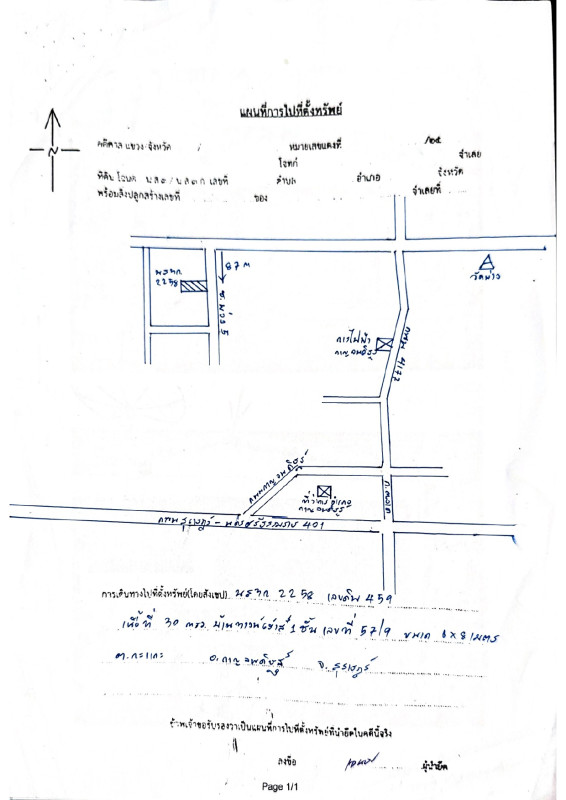 แผนที่การไปที่ตั้งทรัพย์
คดีศาล แขวง/จังหวัด / หมายเลขแดงที่ /๒๕
โจทก์ จำเลย
ที่ดิน โฉนด น.ส.๓ / น.ส.๓ ก. เลขที่ ตำบล อำเภอ จังหวัด
พร้อมสิ่งปลูกสร้างเลขที่ ของ จำเลยที่
N
87 ม
นส3ก
2258
ซ.ม่วง 5
วัดม่วง
การไฟฟ้า
กาญจนดิษฐ์
ถนน 4177
ถนนกาญจนดิษฐ์
ที่ว่าการอำเภอ
กาญจนดิษฐ์
ถนนสุราษฎร์ - นครศรีธรรมราช 401
การเดินทางไปที่ตั้งทรัพย์(โดยสังเขป) นส3ก 2258 เลขดิน 459
เนื้อที่ 30 ตรว. 1 ชั้น เลขที่ 57/9 ขนาด 6 x 8 เมตร
ต.กะแดะ อ.กาญจนดิษฐ์ จ.สุราษฎร์
ข้าพเจ้าขอรับรองว่าเป็นแผนที่การไปที่ตั้งทรัพย์ที่นำยึดในคดีนี้จริง
ลงชื่อ ผู้นำยึด
Page 1/1